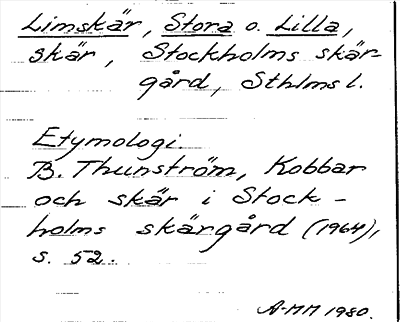 Limskär, Stora o. Lilla,
skär, Stockholms skär-
gård, Sthlms l.
Etymologi
B. Thunström, Kobbar
och skär i Stock-
holms skärgård (1964),
s. 52.
A-MM 1980.